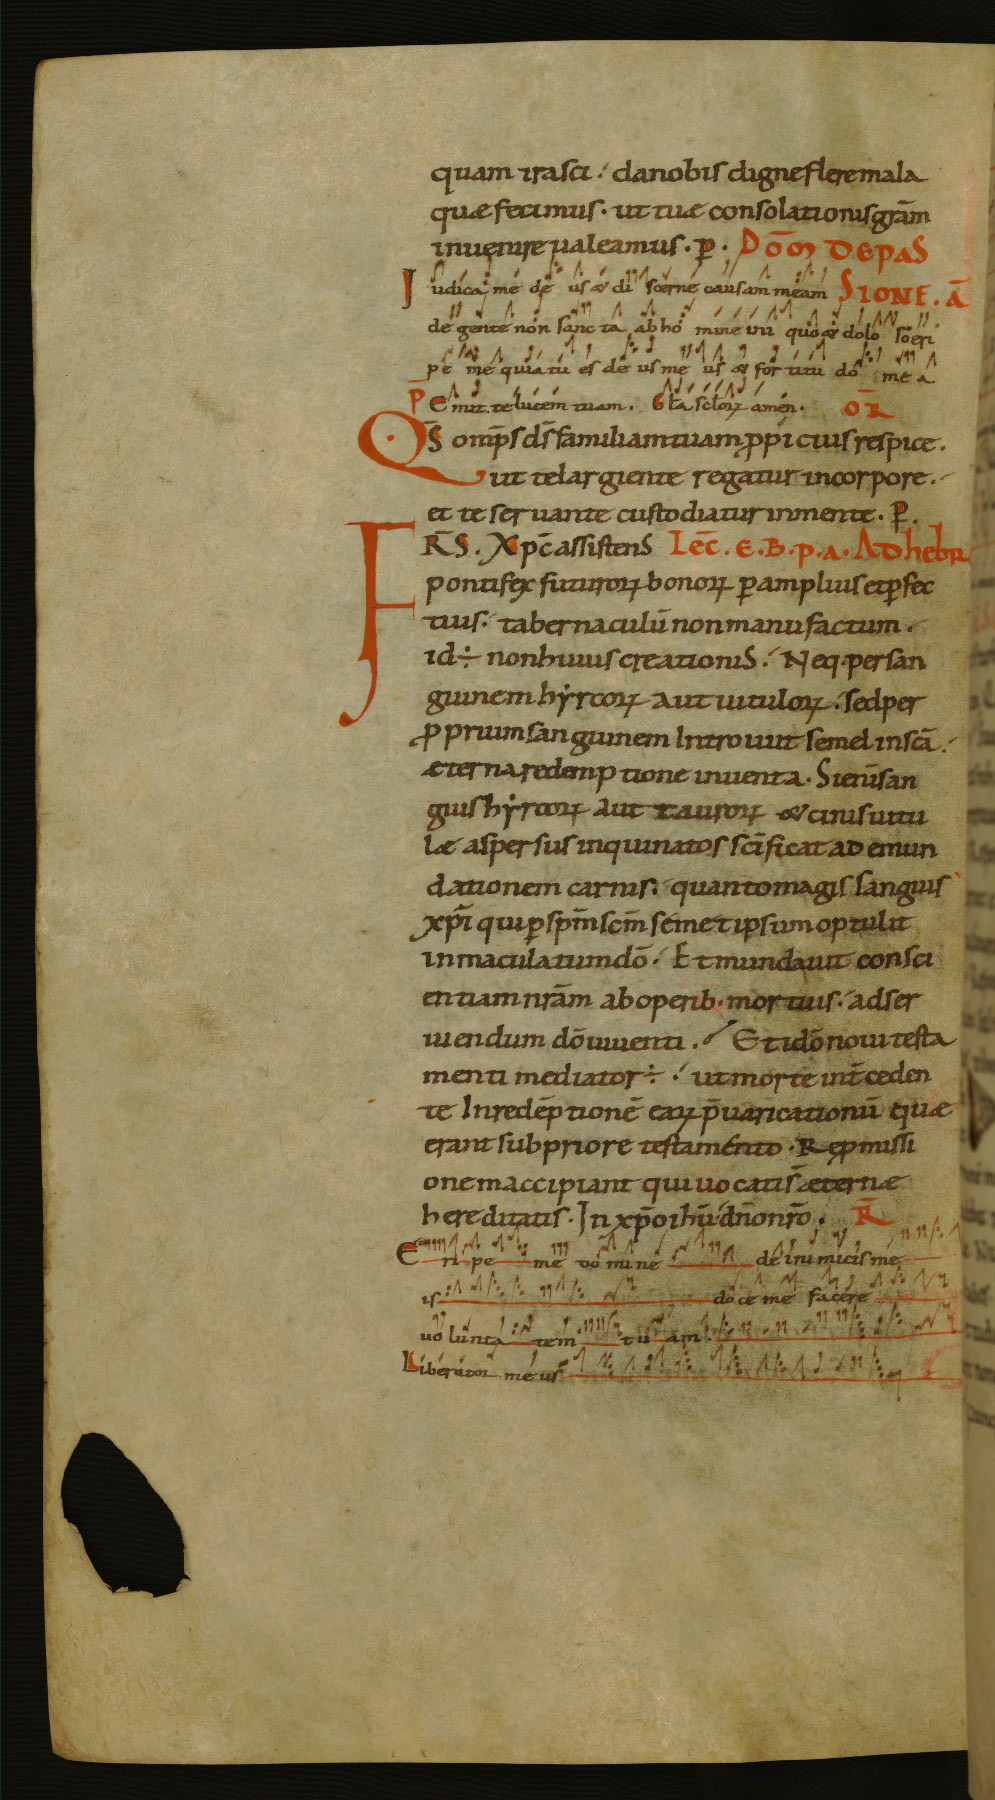 quam irasci. da nobis digne flere mala
quæ fecimus. ut tuæ consolationis grãm
inuenire ualeamus. p̱. Dõm DE PAS
Iudica me deus & discerne causam meam SIONE. Ã
de gente non sancta ab homine iniquo & dolosо eri
pe me quia tu es deus meus & fortitudo mea
P̃ Emitte lucem tuam. Gl̃a sc̃lorꝝ amen. OR̃
Qs̃ omp̃s ds̃ familiam tuam p̱picius respice.
ut te largiente regatur in corpore.
et te seruante custodiatur in mente. p̱.
FR̃S. Xp̃c assistens Lec̃. E. B. P. A. AD hebR
pontifex futurorꝝ bonorꝝ p̱ amplius et p̱fec
tius. tabernaculũ non manu factum.
id ÷ non huius creationis. Neq. per san
guinem hẏrcorꝝ aut uitulorꝝ. sed per
p̱prium sanguinem Introiuit semel in scã.
æterna redemptione inuenta. Si enĩ san
guis hẏrcorꝝ aut taurorꝝ & cinis uitu
læ aspersus inquinatos scĩficat ad emun
dationem carnis. quanto magis sanguis
xp̃i qui p̱ sp̃m scm̃ semet ipsum optulit
inmaculatum dõ. Et mundauit consci
entiam nrãm ab operib. mortuis. ad ser
uiendum dõ uiuenti. Et idõ noui testa
menti mediator ÷. ut morte int̃ceden
te In redẽptionẽ earꝝ p̃uaricationũ quæ
erant sub priore testamento. Rep̱missi
onem accipiant qui uocati s̃ æternæ
hereditatis. In xp̃o ihũ dño nr̃o. R̃
Eripe me domine de inimicis me
is doce me facere
uoluntatem tuam
Liberator meus